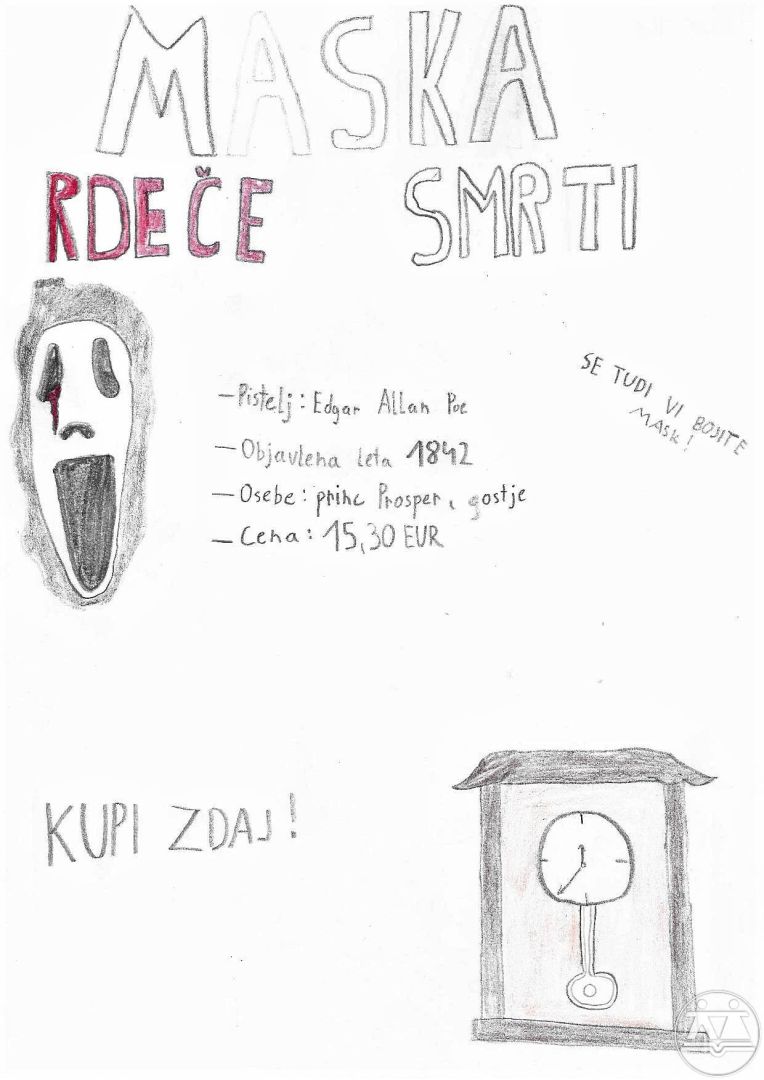 MASKA
RDEČE SMRTI
SE TUDI VI BOJITE
MASK!
-Pistelj: Edgar Allan Poe
-Objavlena leta 1842
-Osebe: princ Prosper, gostje
-Cena: 15,30 EUR
KUPI ZDAJ!